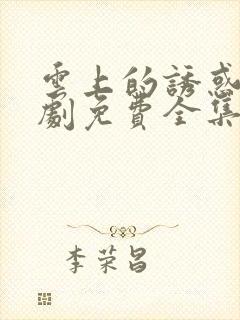 雲上的誘惑
劇免費全集
李荣昌